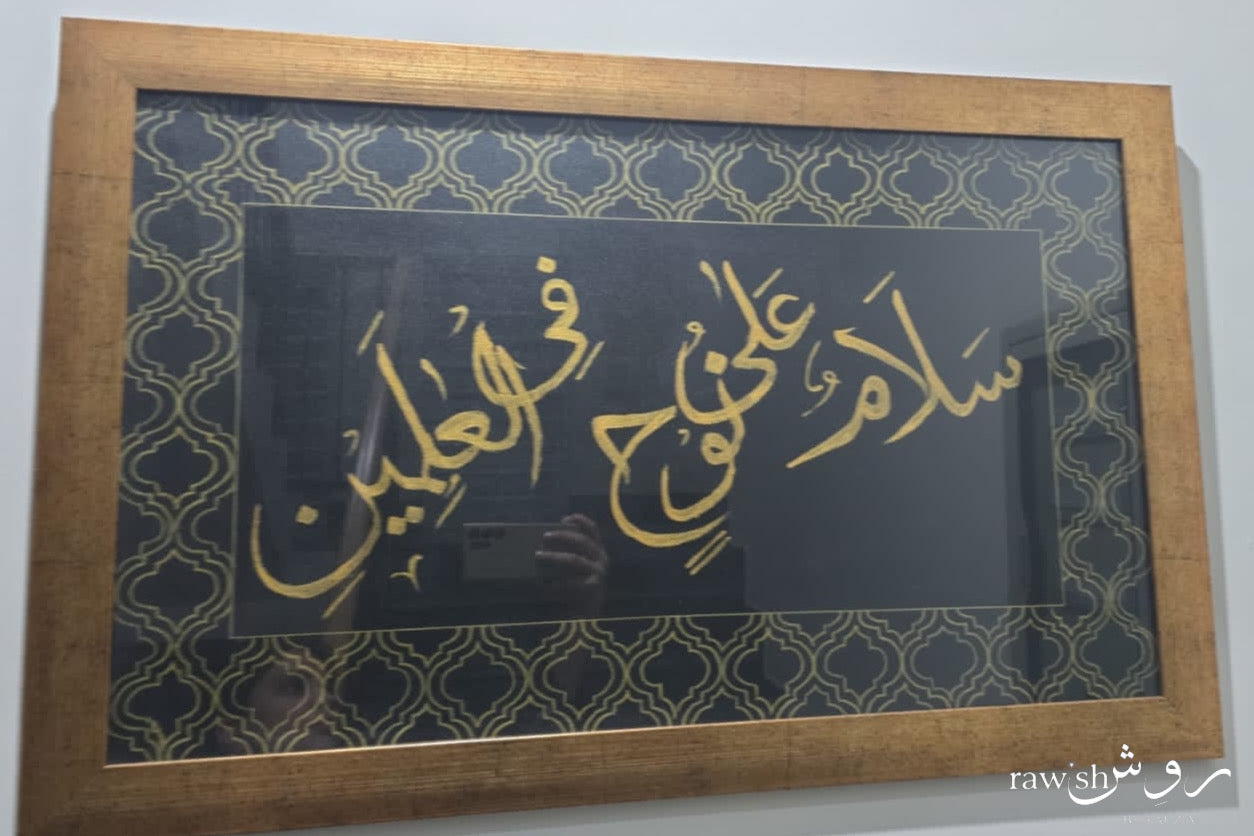 سَلَامٌ عَلَىٰ نُوحٍ فِي الْعَٰلَمِينَ
rawish روش